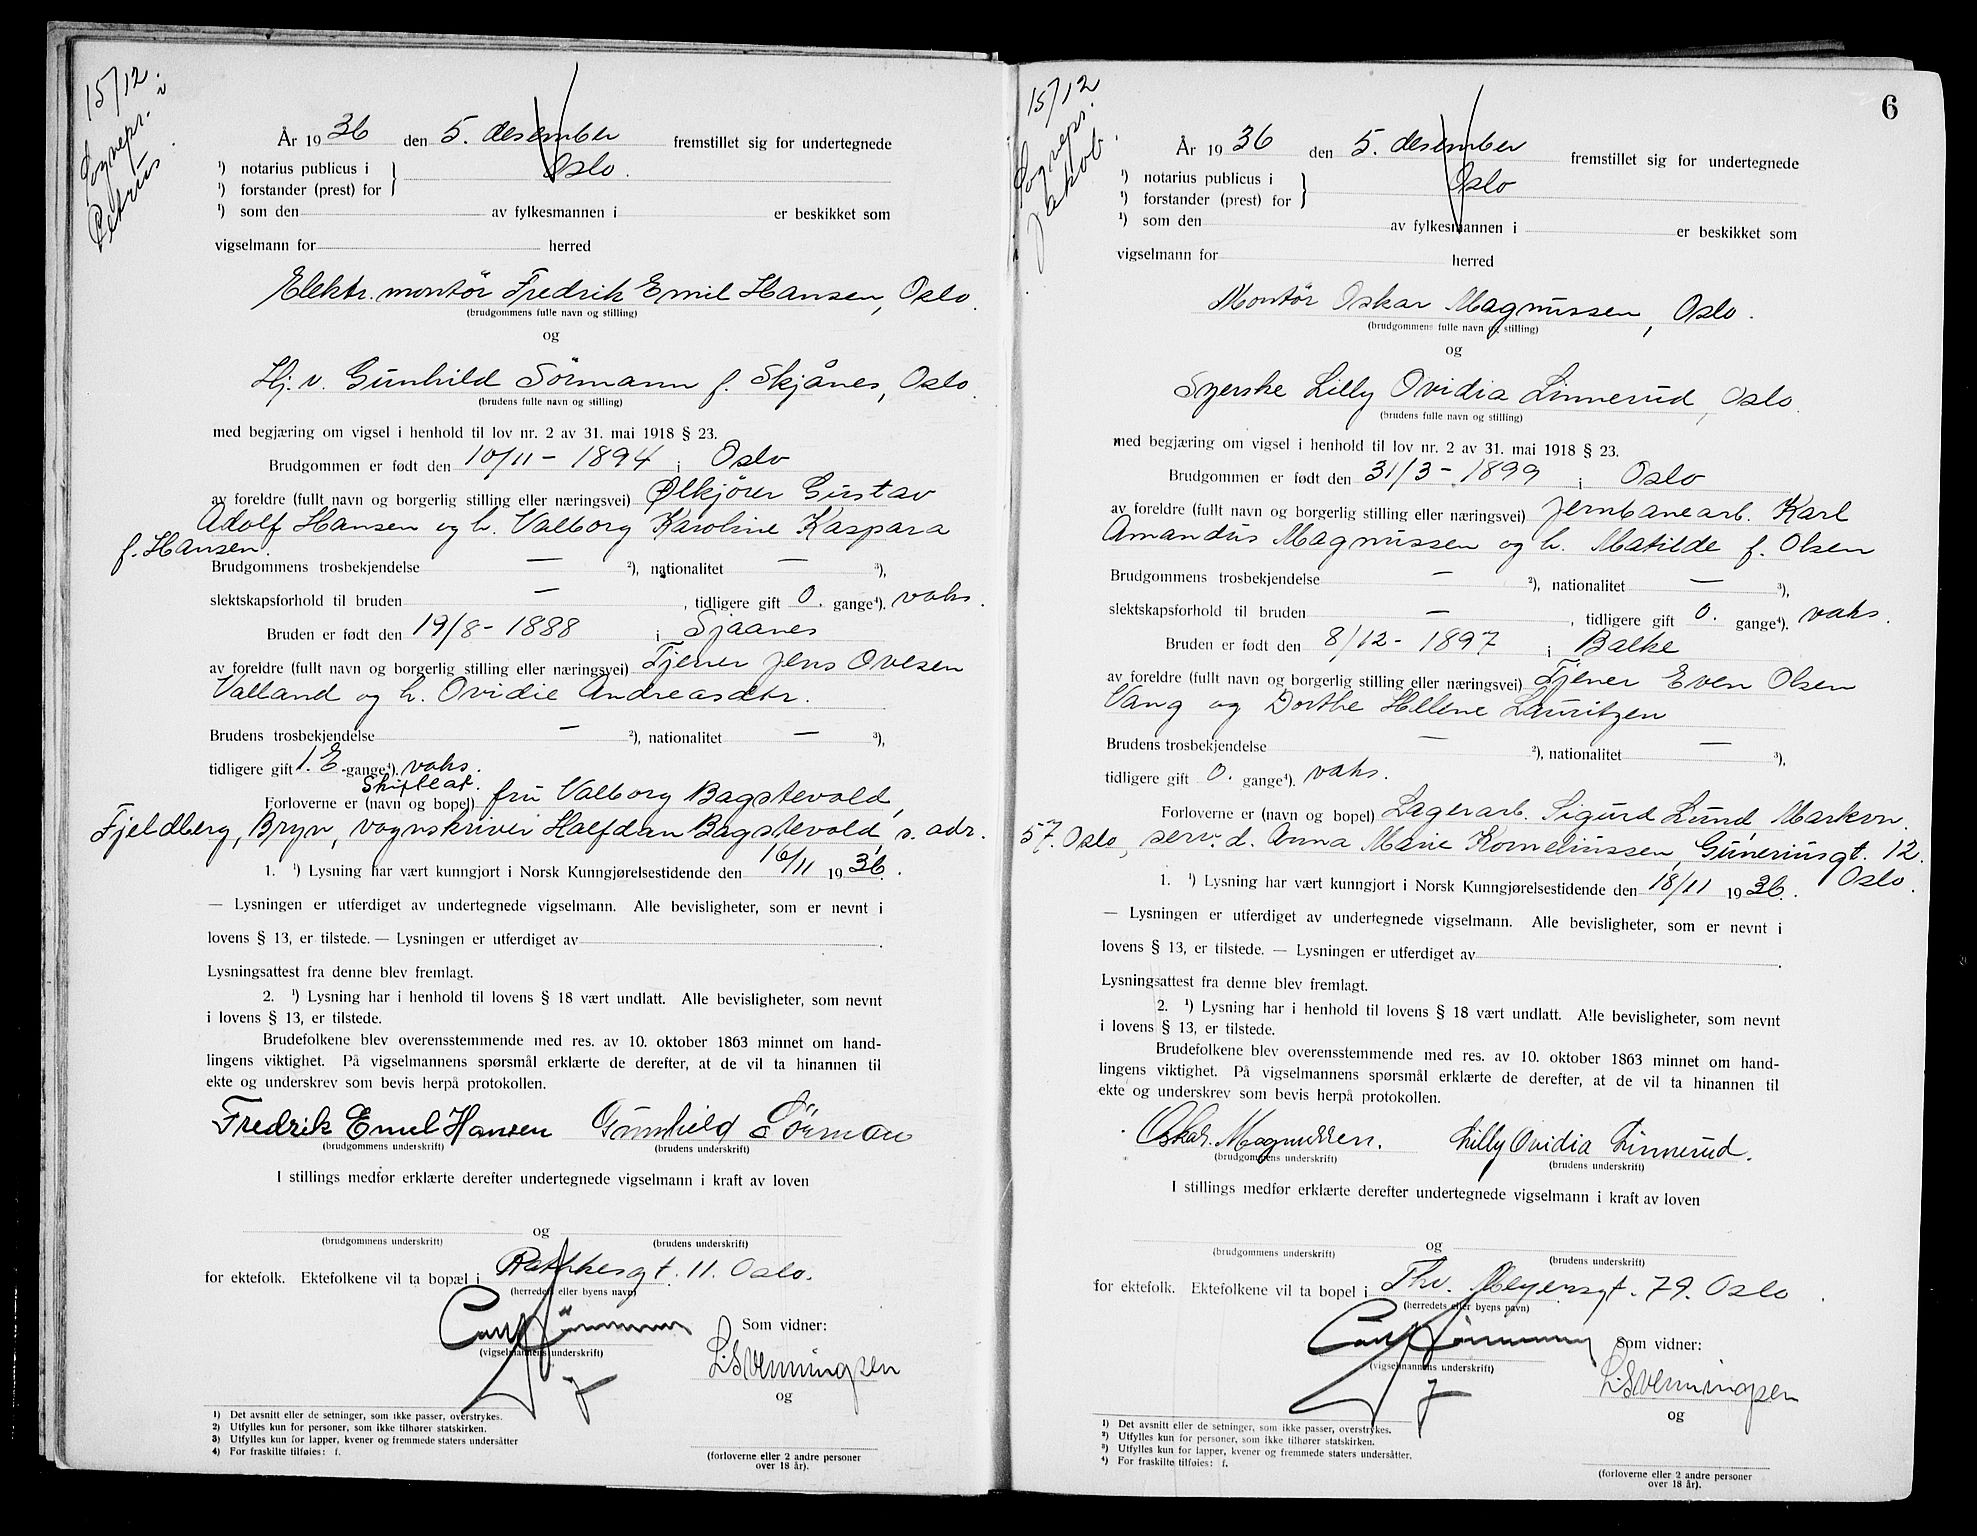 15/12.
Sognepr. i
Petrus
År 1936 den 5. desember fremstillet sig for undertegnede
¹) notarius publicus i
¹) forstander (prest) for } Oslo.
¹) som den av fylkesmannen i er beskikket som
vigselmann for herred
Elektr. montör Fredrik Emil Hansen, Oslo.
(brudgommens fulle navn og stilling)
og
Hj. v. Gunhild Sörmann f. Skjånes, Oslo.
(brudens fulle navn og stilling)
med begjæring om vigsel i henhold til lov nr. 2 av 31. mai 1918 § 23.
Brudgommen er født den 10/11 - 1894 i Oslo
av foreldre (fullt navn og borgerlig stilling eller næringsvei) Ølkjörer Gustav
Adolf Hansen og h. Valborg Karoline Kaspara
f. Hansen.
Brudgommens trosbekjendelse — ²), nationalitet — ³),
slektskapsforhold til bruden — , tidligere gift 0. gange⁴). vaks.
Bruden er født den 19/8 - 1888 i Sjaanes
av foreldre (fullt navn og borgerlig stilling eller næringsvei) Tjener Jens Ovesen
Valland og h. Ovidie Andreasdtr.
Brudens trosbekjendelse — ²), nationalitet — ³),
tidligere gift 1. E gange⁴). vaks.
Skifteat.
Forloverne er (navn og bopel) fru Valborg Bagstevold,
Fjeldberg, Bryn, vognskriver Halfdan Bagstevold, s. adr.
1. ¹) Lysning har vært kunngjort i Norsk Kunngjørelsestidende den 16/11 1936.
— Lysningen er utferdiget av undertegnede vigselmann. Alle bevisligheter, som er nevnt i
lovens § 13, er tilstede. — Lysningen er utferdiget av .
Lysningsattest fra denne blev fremlagt.
2. ¹) Lysning har i henhold til lovens § 18 vært undlatt. Alle bevisligheter, som nevnt
i lovens § 13, er tilstede.
Brudefolkene blev overensstemmende med res. av 10. oktober 1863 minnet om hand-
lingens viktighet. På vigselmannens spørsmål erklærte de derefter, at de vil ta hinannen til
ekte og underskrev som bevis herpå protokollen.
Fredrik Emil Hansen Gunhild Sörman
(brudgommens underskrift) (brudens underskrift)
I stillings medfør erklærte derefter undertegnede vigselmann i kraft av loven
og
(brudgommens underskrift) (brudens underskrift)
for ektefolk. Ektefolkene vil ta bopæl i Rathkesgt. 11. Oslo.
(herredets eller byens navn)
Som vidner:
(vigselmannens underskrift)
L. Svenningsen
og
1) Det avsnitt eller de setninger, som ikke passer, overstrykes.
2) Utfylles kun for personer, som ikke tilhører statskirken.
3) Utfylles kun for lapper, kvener og fremmede staters undersåtter
4) For fraskilte tilføies: f.
(forloverne eller 2 andre personer
over 18 år).
6
15/12
Sogneps.
Jakob.
År 1936 den 5. desember fremstillet sig for undertegnede
¹) notarius publicus i
¹) forstander (prest) for } Oslo
¹) som den av fylkesmannen i er beskikket som
vigselmann for herred
Montör Oskar Magnussen, Oslo.
(brudgommens fulle navn og stilling)
og
Syerske Lilly Ovidia Linnerud, Oslo.
(brudens fulle navn og stilling)
med begjæring om vigsel i henhold til lov nr. 2 av 31. mai 1918 § 23.
Brudgommen er født den 31/3 - 1899 i Oslo
av foreldre (fullt navn og borgerlig stilling eller næringsvei) Jernbanearb. Karl
Amandus Magnussen og h. Matilde f. Olsen
Brudgommens trosbekjendelse — ²), nationalitet — ³),
slektskapsforhold til bruden — , tidligere gift 0. gange⁴). vaks.
Bruden er født den 8/12 - 1897 i Balke
av foreldre (fullt navn og borgerlig stilling eller næringsvei) Tjener Even Olsen
Vang og Dorthe Helene Lauritzen
Brudens trosbekjendelse — ²), nationalitet — ³),
tidligere gift 0. gange⁴). vaks.
Forloverne er (navn og bopel) Lagerarb. Sigurd Lund Markvn.
57. Oslo, serv. d. Anna Marie Korneliussen, Guneriusgt. 12.
Oslo.
1. ¹) Lysning har vært kunngjort i Norsk Kunngjørelsestidende den 18/11 1936.
— Lysningen er utferdiget av undertegnede vigselmann. Alle bevisligheter, som er nevnt i
lovens § 13, er tilstede. — Lysningen er utferdiget av .
Lysningsattest fra denne blev fremlagt.
2. ¹) Lysning har i henhold til lovens § 18 vært undlatt. Alle bevisligheter, som nevnt
i lovens § 13, er tilstede.
Brudefolkene blev overensstemmende med res. av 10. oktober 1863 minnet om hand-
lingens viktighet. På vigselmannens spørsmål erklærte de derefter, at de vil ta hinannen til
ekte og underskrev som bevis herpå protokollen.
Oskar. Magnussen. Lilly Ovidia Linnerud.
(brudgommens underskrift) (brudens underskrift)
I stillings medfør erklærte derefter undertegnede vigselmann i kraft av loven
og
(brudgommens underskrift) (brudens underskrift)
for ektefolk. Ektefolkene vil ta bopel i Thv. Meyersgt. 79. Oslo.
(herredets eller byens navn)
Som vidner:
(vigselmannens underskrift)
L. Svenningsen
og
¹) Det avsnitt eller de setninger, som ikke passer, overstrykes.
²) Utfylles kun for personer, som ikke tilhører statskirken.
³) Utfylles kun for lapper, kvener og fremmede staters undersåtter.
⁴) For fraskilte tilføies: f.
(forloverne eller 2 andre personer
over 18 år).